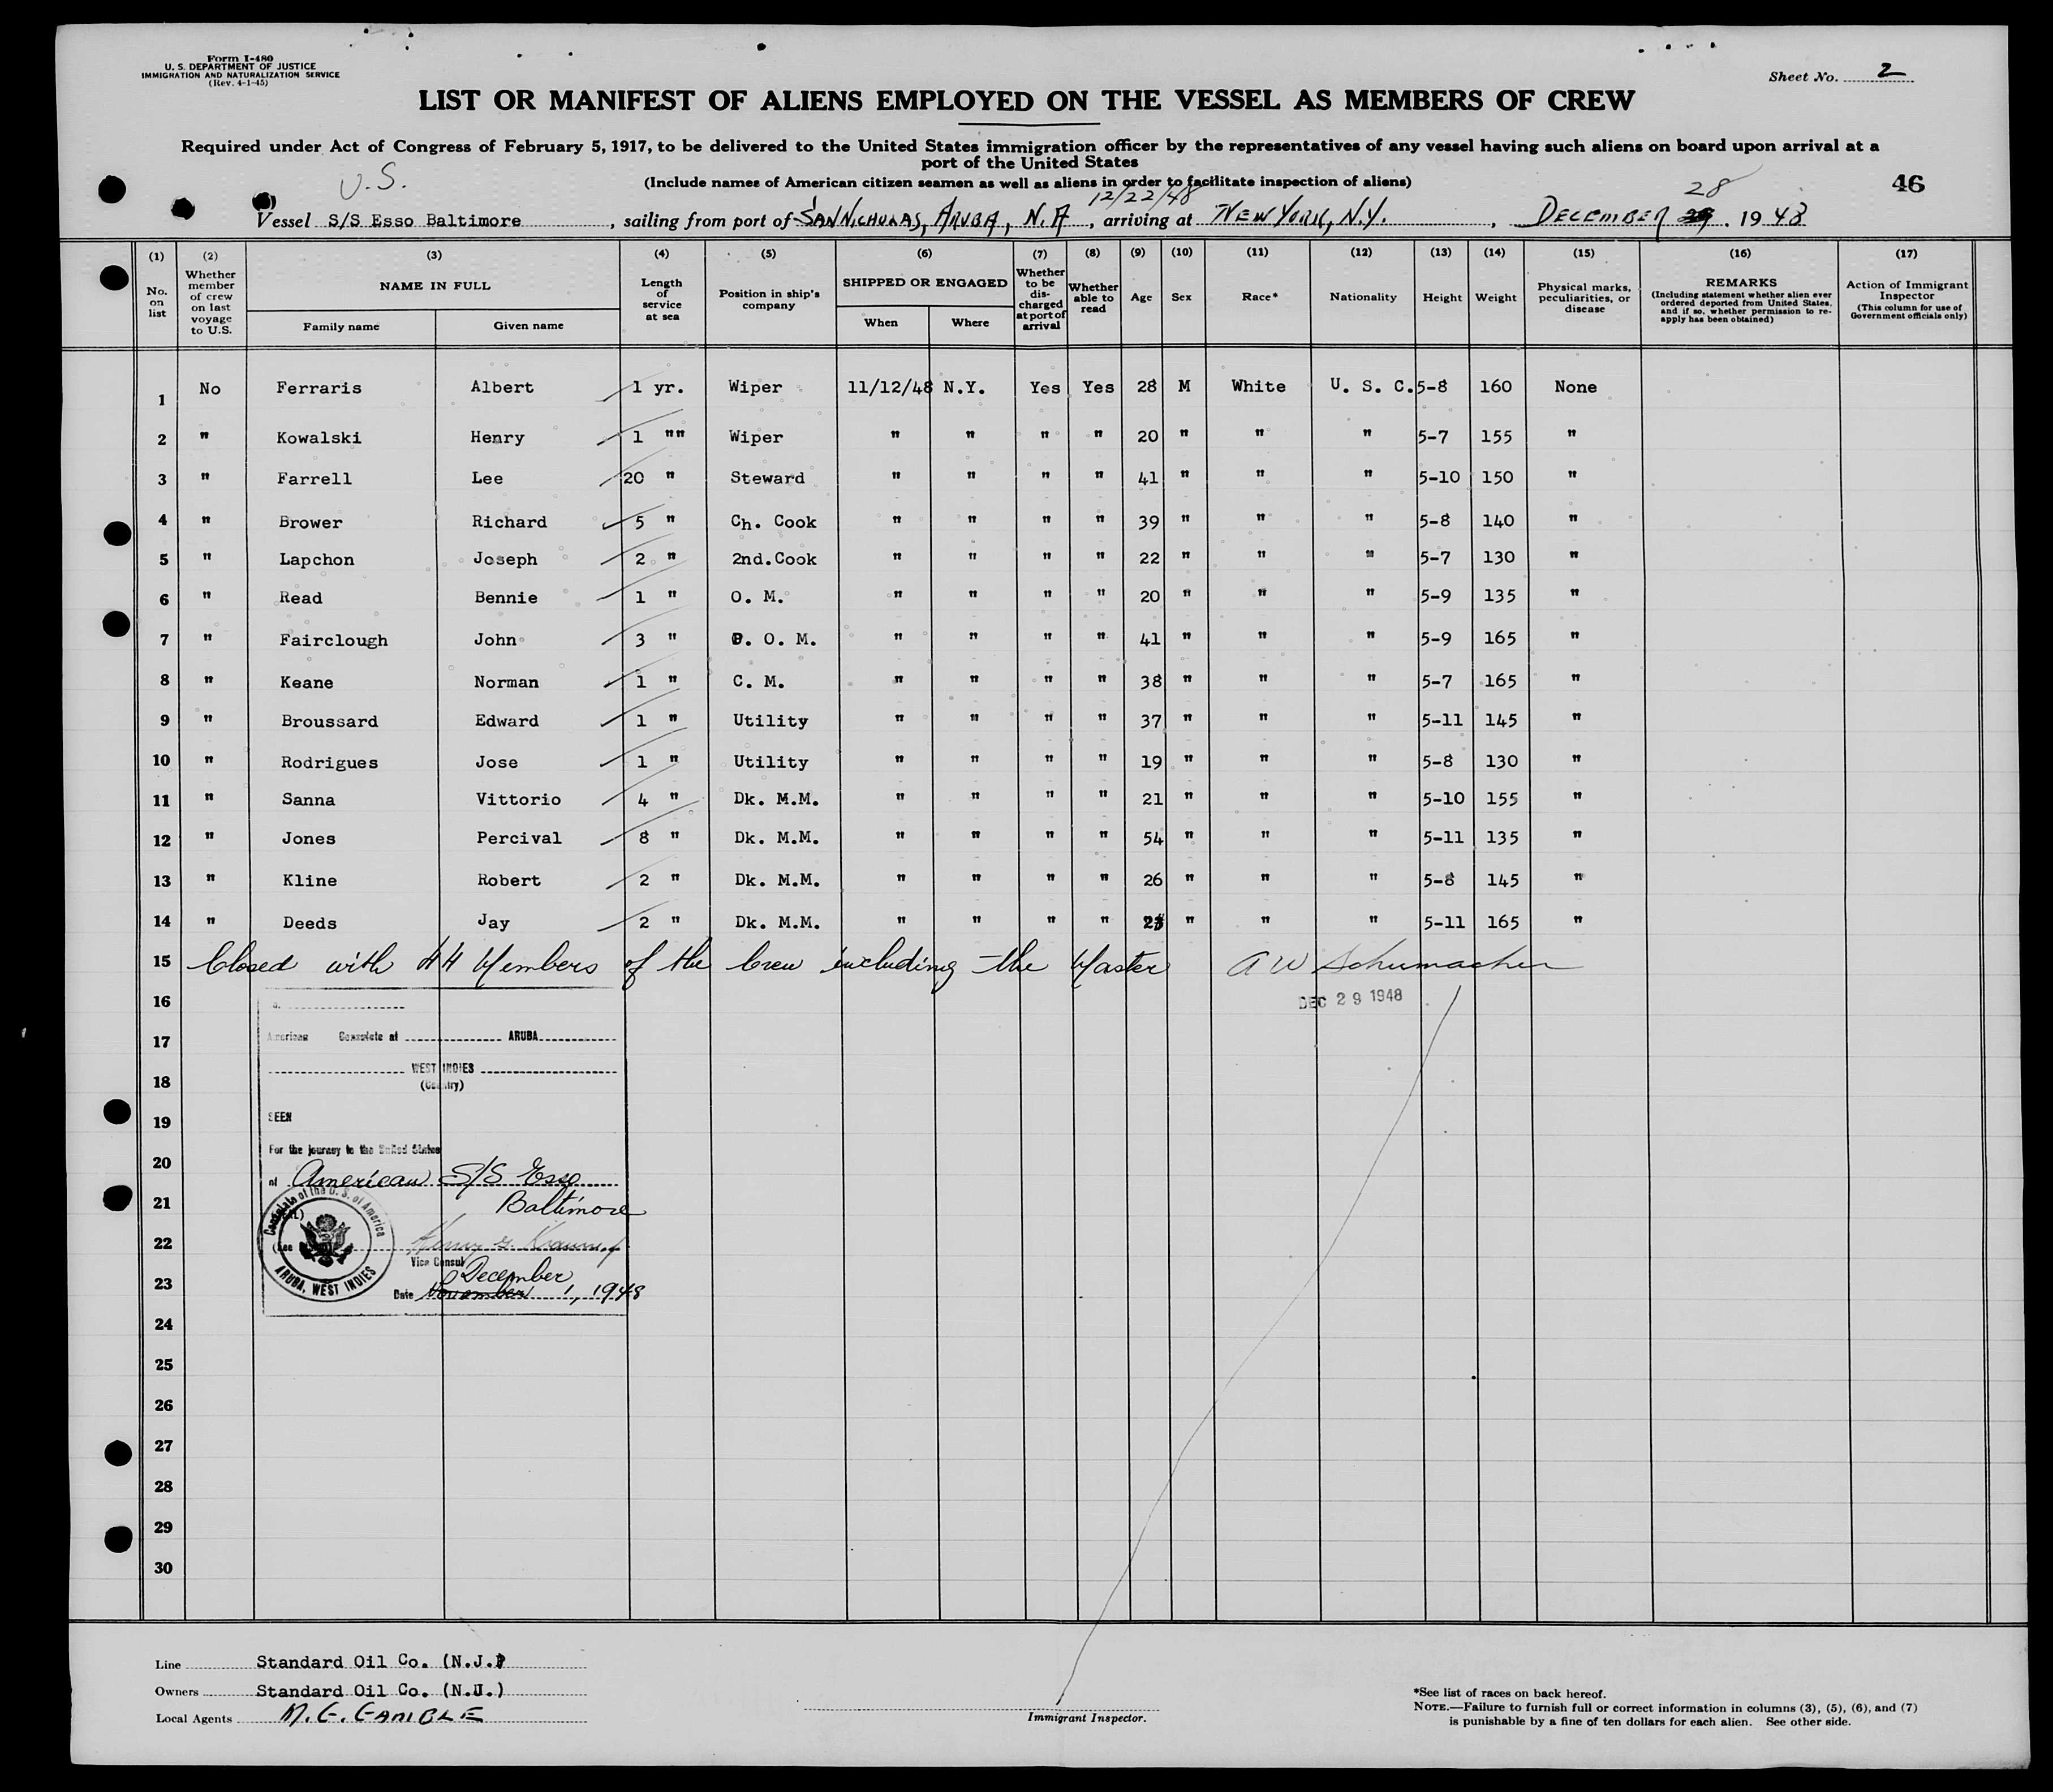 Form I-480
U. S. DEPARTMENT OF JUSTICE
IMMIGRATION AND NATURALIZATION SERVICE
(Rev. 4-1-45)
Sheet No. 2
LIST OR MANIFEST OF ALIENS EMPLOYED ON THE VESSEL AS MEMBERS OF CREW
Required under Act of Congress of February 5, 1917, to be delivered to the United States immigration officer by the representatives of any vessel having such aliens on board upon arrival at a
port of the United States
(Include names of American citizen seamen as well as aliens in order to facilitate inspection of aliens)
U.S.
12/22/48
28
46
Vessel S/S Esso Baltimore, sailing from port of SAN NICHOLAS, ARUBA, N.A, arriving at NEW YORK, N.Y., DECEMBER 29. 1948
(1) (2) (3) (4) (5) (6) (7) (8) (9) (10) (11) (12) (13) (14) (15) (16) (17)
No. on list
Whether member of crew on last voyage to U.S.
NAME IN FULL
Family name Given name
Length of service at sea
Position in ship's company
SHIPPED OR ENGAGED
When Where
Whether to be discharged at port of arrival
Whether able to read
Age
Sex
Race*
Nationality
Height
Weight
Physical marks, peculiarities, or disease
REMARKS
(Including statement whether alien ever ordered deported from United States, and if so, whether permission to re-apply has been obtained)
Action of Immigrant Inspector
(This column for use of Government officials only)
1 No Ferraris Albert 1 yr. Wiper 11/12/48 N.Y. Yes Yes 28 M White U. S. C. 5-8 160 None
2 " Kowalski Henry 1 "" Wiper " " " " 20 " " " 5-7 155 "
3 " Farrell Lee 20 " Steward " " " " 41 " " " 5-10 150 "
4 " Brower Richard 5 " Ch. Cook " " " " 39 " " " 5-8 140 "
5 " Lapchon Joseph 2 " 2nd.Cook " " " " 22 " " " 5-7 130 "
6 " Read Bennie 1 " O. M. " " " " 20 " " " 5-9 135 "
7 " Fairclough John 3 " P. O. M. " " " " 41 " " " 5-9 165 "
8 " Keane Norman 1 " C. M. " " " " 38 " " " 5-7 165 "
9 " Broussard Edward 1 " Utility " " " " 37 " " " 5-11 145 "
10 " Rodrigues Jose 1 " Utility " " " " 19 " " " 5-8 130 "
11 " Sanna Vittorio 4 " Dk. M.M. " " " " 21 " " " 5-10 155 "
12 " Jones Percival 8 " Dk. M.M. " " " " 54 " " " 5-11 135 "
13 " Kline Robert 2 " Dk. M.M. " " " " 26 " " " 5-8 145 "
14 " Deeds Jay 2 " Dk. M.M. " " " " " " " 5-11 165 "
15 Closed with 44 Members of the Crew including the Master A W Schumacher
16 DEC 29 1948
17 American Consulate at ARUBA
WEST INDIES
18 (Country)
19 SEEN
20 For the journey to the United States
of American S/S Esso
21 Baltimore
Consulate of the U. S. of America
ARUBA, WEST INDIES
22
Vice Consul
December
23 Date November 1, 1948
24
25
26
27
28
29
30
Line Standard Oil Co. (N.J.)
Owners Standard Oil Co. (N.J.)
Local Agents M. G. GAMBLE
Immigrant Inspector.
*See list of races on back hereof.
NOTE.—Failure to furnish full or correct information in columns (3), (5), (6), and (7)
is punishable by a fine of ten dollars for each alien. See other side.